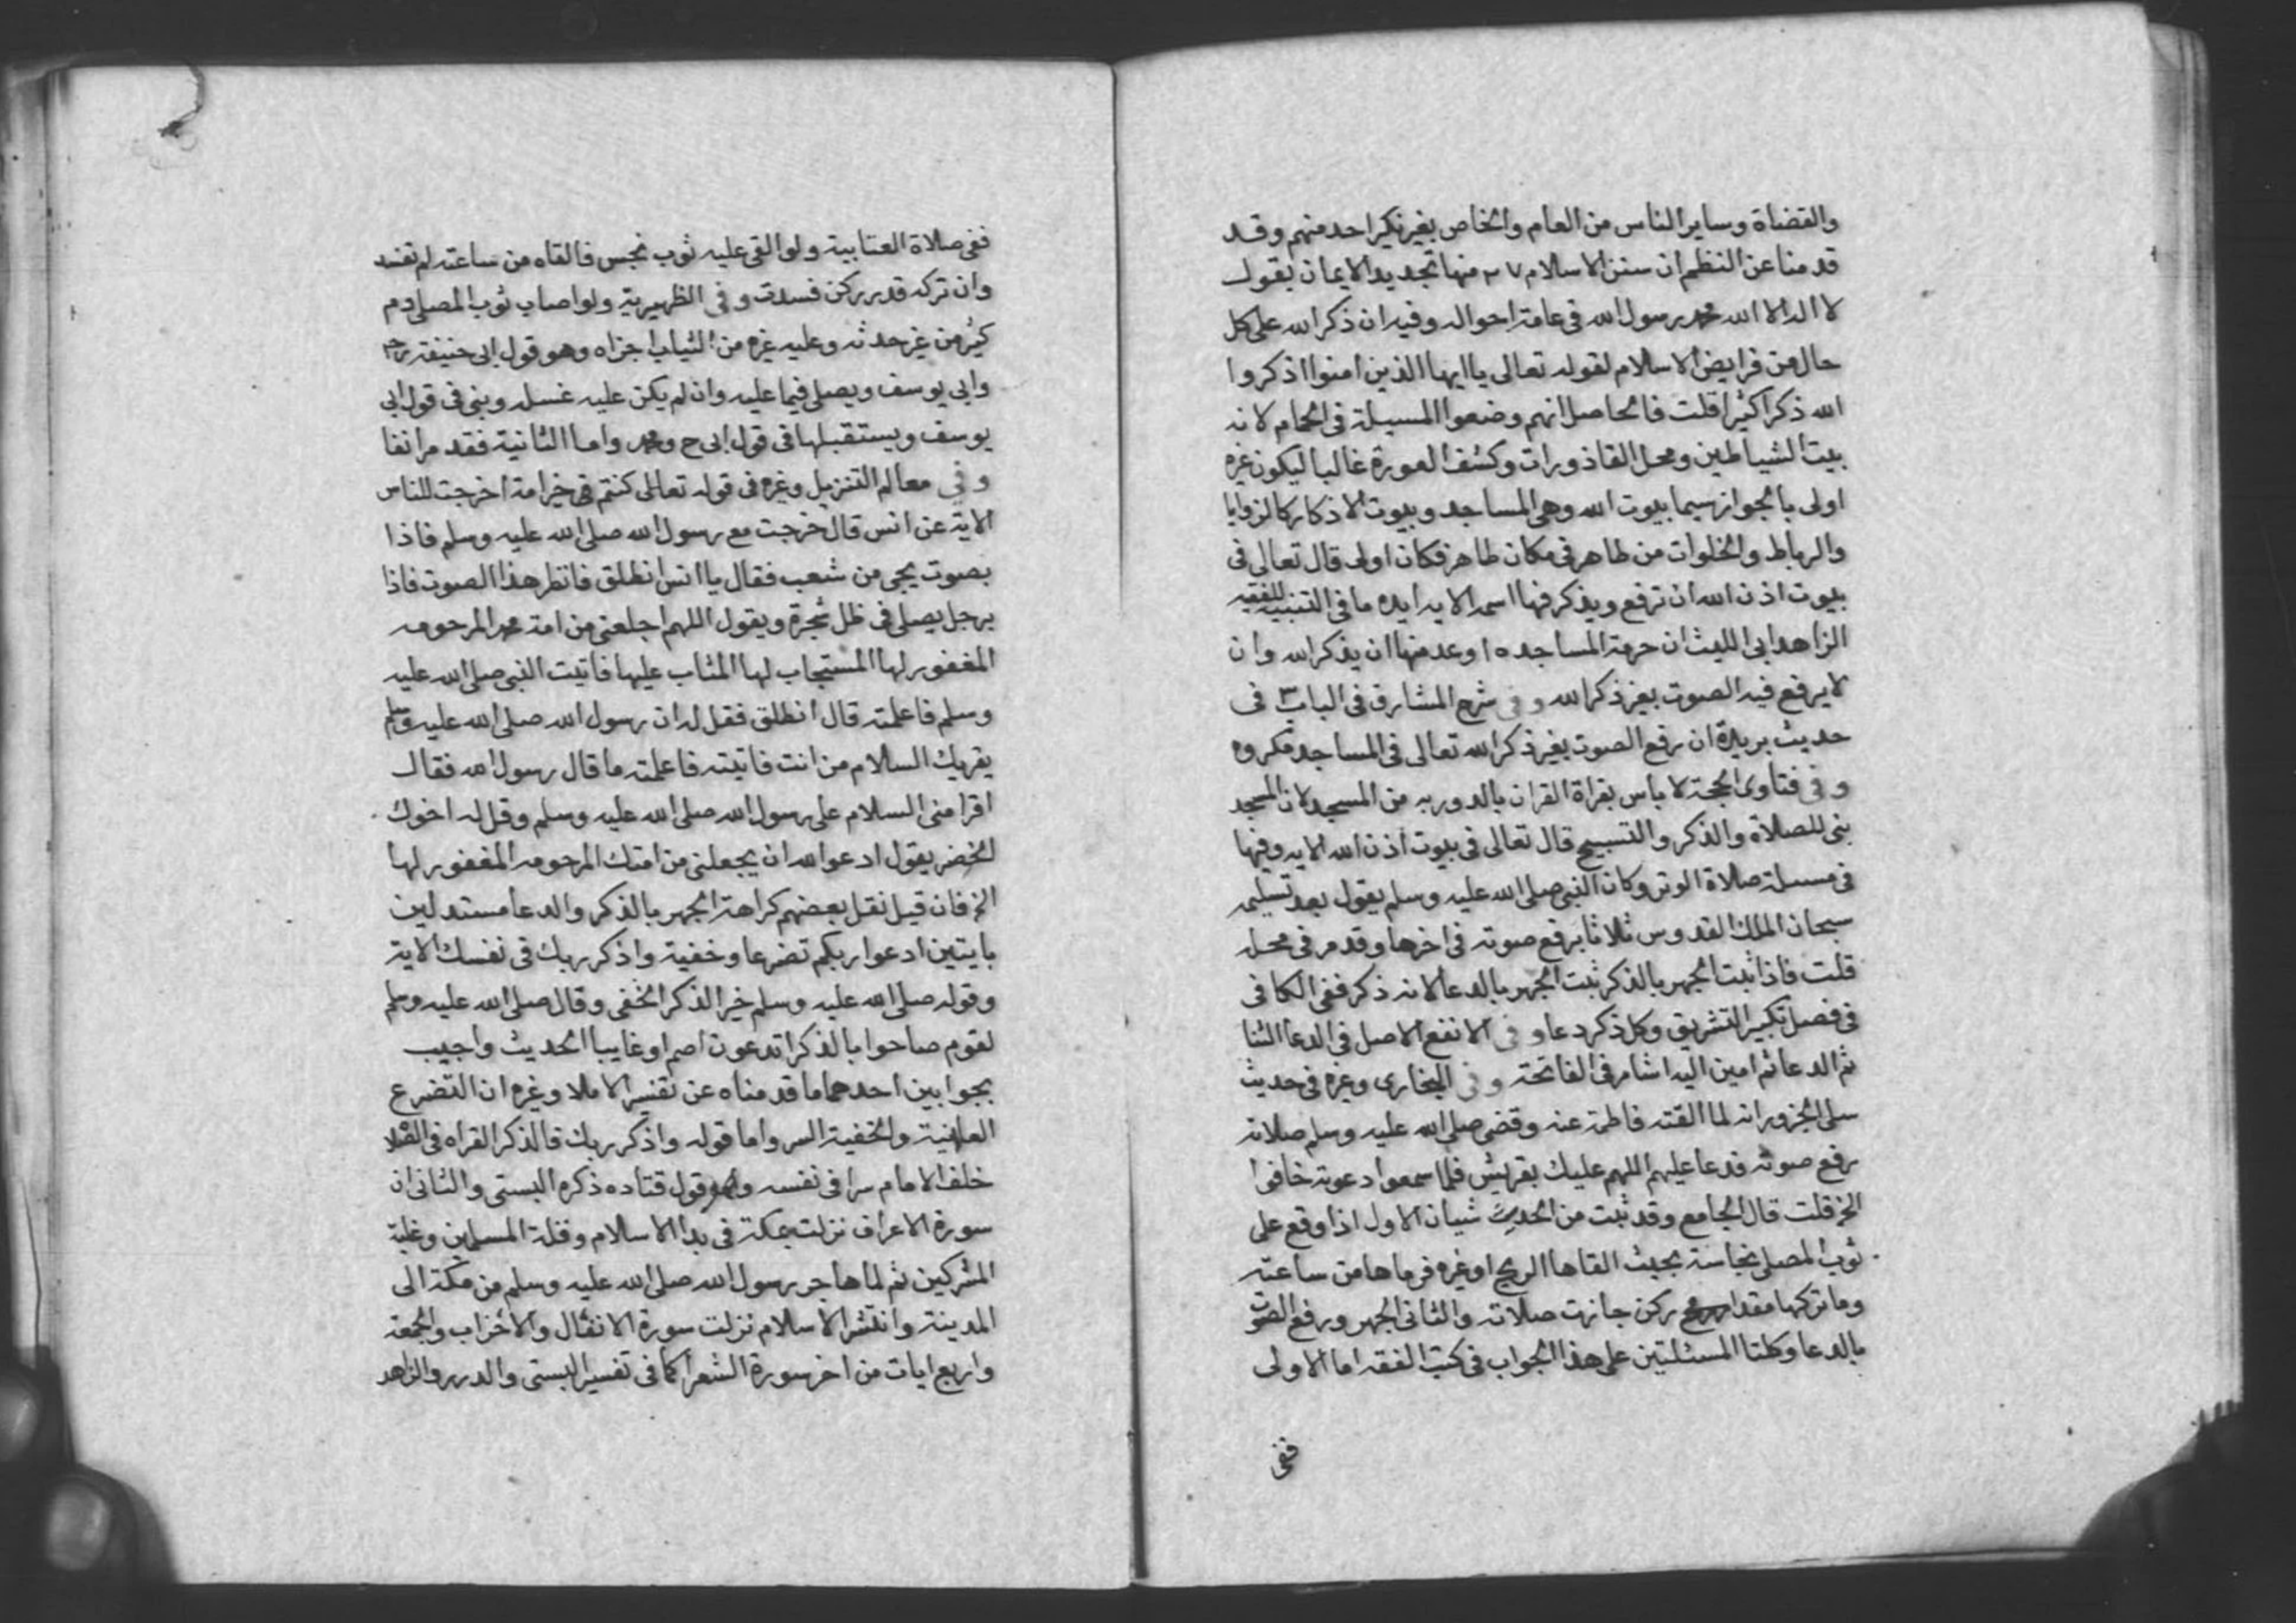 والقضاة وساير الناس من العام والخاص بغير نكير احد منهم وقد
قدمنا عن النظم ان سنن الاسلام ٢٧ منها تجديد الايمان بقول
لا اله الا الله محمد رسول الله فى عامة احواله وفيه ان ذكر الله على كل
حال من فرايض الاسلام لقوله تعالى يا ايها الذين امنوا اذكروا
الله ذكرا كثيرا قلت فالحاصل انهم وضعوا المسيلة فى الحمام لانه
بيت الشياطين ومحل القاذورات وكشف العورة غالبا ليكون غيره
اولى بالجواز سيما بيوت الله وهى المساجد وبيوت الاذكار كالزوايا
والرباط والخلوات من طاهر فى مكان طاهر فكان اولى قال تعالى فى
بيوت اذن الله ان ترفع ويذكر فيها اسمه الايه ايده ما فى التنبيه للفقيه
الزاهد ابى الليث ان حرمة المساجد ١٥ وعد منها ان يذكر الله وان
لا يرفع فيه الصوت بغير ذكر الله وفى شرح المشارق فى الباب ٣ فى
حديث بريدة ان رفع الصوت بغير ذكر الله تعالى فى المساجد مكروه
وفى فتاوى الحجة لا باس بقراة القران بالدور به من المسجد لان المسجد
بنى للصلاة والذكر والتسبيح قال تعالى فى بيوت اذن الله الايه وفيها
فى مسيلة صلاة الوتر وكان النبى صلى الله عليه وسلم يقول بعد تسليمه
سبحان الملك القدوس ثلاثا يرفع صوته فى اخرها وقد مر فى محله
قلت فاذا ثبت الجهر بالذكر ثبت الجهر بالدعا لانه ذكر ففى الكافى
فى فصل تكبير التشريق وكل ذكر دعا وفى الانفع الاصل فى الدعا الثنا
ثم الدعا ثم امين اليه اشار فى الفاتحة وفى البخارى وغيره فى حديث
سلى الجزور انه لما القته فاطمة عنه وقضى صلى الله عليه وسلم صلاته
رفع صوته فدعا عليهم اللهم عليك بقريش فلما سمعوا دعوته خافوا
الخ قلت قال الجامع وقد ثبت من الحديث شيان الاول اذا وقع على
ثوب المصلى نجاسة بحيث القاها الريح او غيره فرماها من ساعته
وما تركها مقدار ركن جازت صلاته والثانى الجهر ورفع الصوت
بالدعا وكلتا المسئلتين على هذا الجواب فى كتب الفقه اما الاولى
ففى
ففى صلاة العتابية ولو القى عليه ثوب نجس فالقاه من ساعته لم تفسد
وان تركه قدر ركن فسدت وفى الظهيرية ولو اصاب ثوب المصلى دم
كثير من غير حدثه وعليه غيره من الثياب اجزاه وهو قول ابى حنيفة رح
وابى يوسف ويصلى فيما عليه وان لم يكن عليه غسله وبنى فى قول ابى
يوسف ويستقبلها فى قول ابى ح ومحمد واما الثانية فقد مر انفا
وفى معالم التنزيل وغيره فى قوله تعالى كنتم خير امة اخرجت للناس
الاية عن انس قال خرجت مع رسول الله صلى الله عليه وسلم فاذا
بصوت يجى من شعب فقال يا انس انطلق فانظر هذا الصوت فاذا
برجل يصلى فى ظل شجرة ويقول اللهم اجلعنى من امة محمد المرحومه
المغفور لها المستجاب لها المثاب عليها فاتيت النبى صلى الله عليه
وسلم فاعلمته قال انطلق فقل له ان رسول الله صلى الله عليه وسلم
يقريك السلام من انت فاتيته فاعلمته ما قال رسول الله فقال
اقرا منى السلام على رسول الله صلى الله عليه وسلم وقل له اخوك
الخضر يقول ادعو الله ان يجعلنى من امتك المرحومه المغفور لها
الخ فان قيل نقل بعضهم كراهة الجهر بالذكر والدعا مستدلين
بايتين ادعوا ربكم تضرعا وخفية واذكر ربك فى نفسك الاية
وقوله صلى الله عليه وسلم خير الذكر الخفى وقال صلى الله عليه وسلم
لقوم صاحوا بالذكر اتدعون اصم او غايبا الحديث واجيب
بجوابين احدهما ما قدمناه عن تفسير الاملا وغيره ان التضرع
العلانية والخفية السر واما قوله واذكر ربك فالذكر القراه فى الصلاة
خلف الامام سرا فى نفسه وهو قول قتاده ذكره البستى والثانى ان
سورة الاعراف نزلت بمكة فى بدا الاسلام وقلة المسلمين وغلبة
المشركين ثم لما هاجر رسول الله صلى الله عليه وسلم من مكة الى
المدينة وانتشر الاسلام نزلت سورة الانفال والاحزاب والجمعة
واربع ايات من اخر سورة الشعرا كما فى تفسير البستى والدرر والزاهد